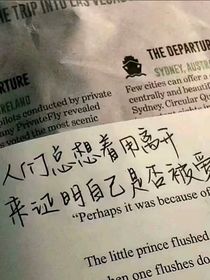 THE TRIP INTO LAS VEGAS
THE DEPARTURE
SYDNEY, AUSTRALIA
Few cities can offer a
centrally and beautiful
Sydney. Circular Qu
PARTURE
RELAND
pilots conducted by private
PrivateFly revealed
voted the most scenic
人们总想着用离开
来证明自己是否被爱
"Perhaps it was because of
The little prince flushed
than one flushes do